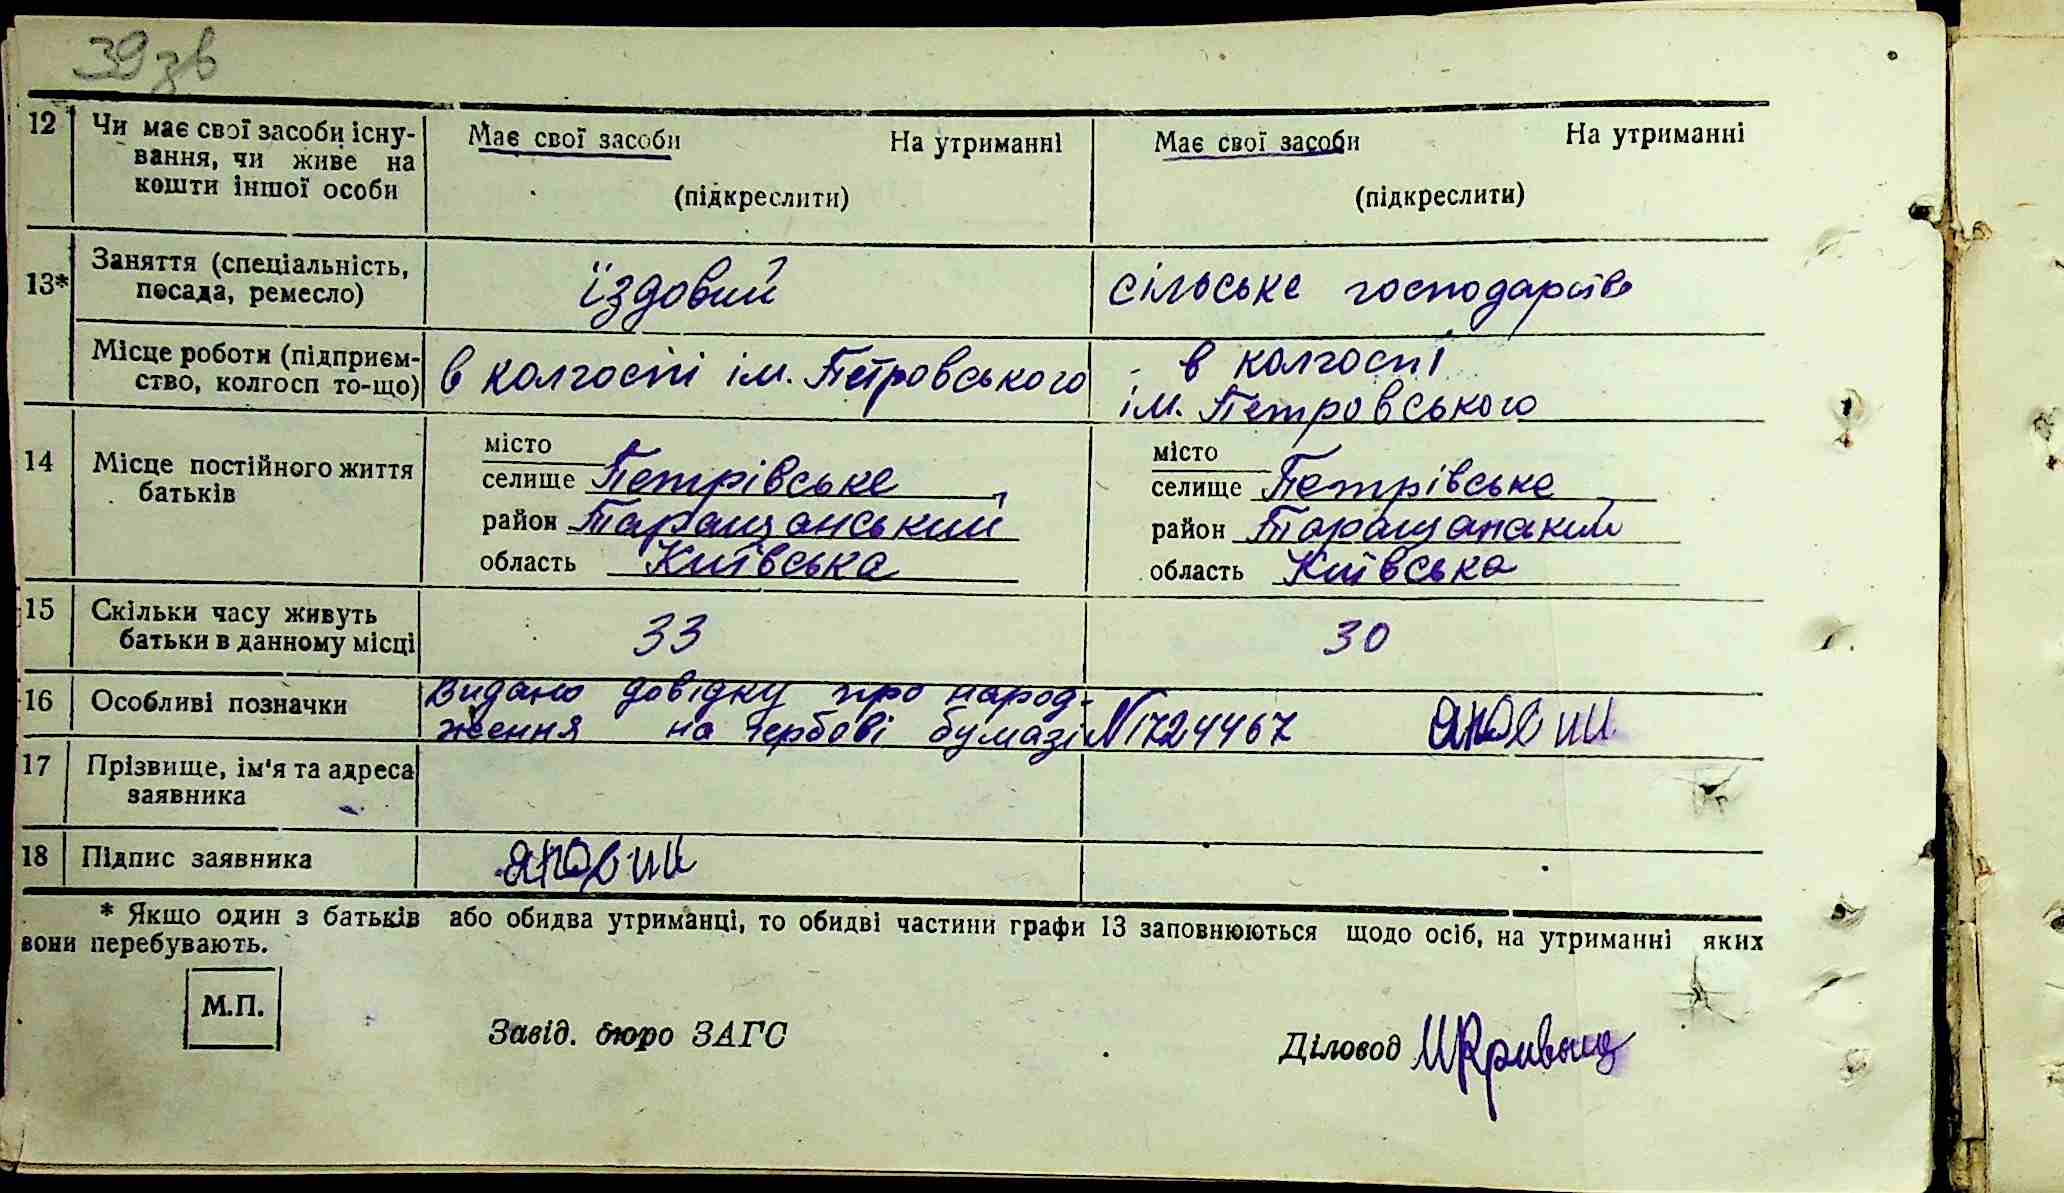 39 зв
12 Чи має свої засоби існу- Має свої засоби На утриманні Має свої засоби На утриманні
вання, чи живе на
кошти іншої особи (підкреслити) (підкреслити)
13* Заняття (спеціальність, їздовий сільське господарств
посада, ремесло)
Місце роботи (підприєм- в колгоспі ім. Петровського в колгоспі
ство, колгосп то-що) ім. Петровського
14 Місце постійного життя місто місто
батьків селище Петрівське селище Петрівське
район Таращанський район Таращанський
область Київська область Київська
15 Скільки часу живуть 33 30
батьки в данному місці
16 Особливі позначки видано довідку про народ-
ження на гербові бумазі №1724467 Яковий
17 Прізвище, ім'я та адреса
заявника
18 Підпис заявника Яковий
* Якщо один з батьків або обидва утриманці, то обидві частини графи 13 заповнюються щодо осіб, на утриманні яких
вони перебувають.
М.П.
Завід. бюро ЗАГС Діловод